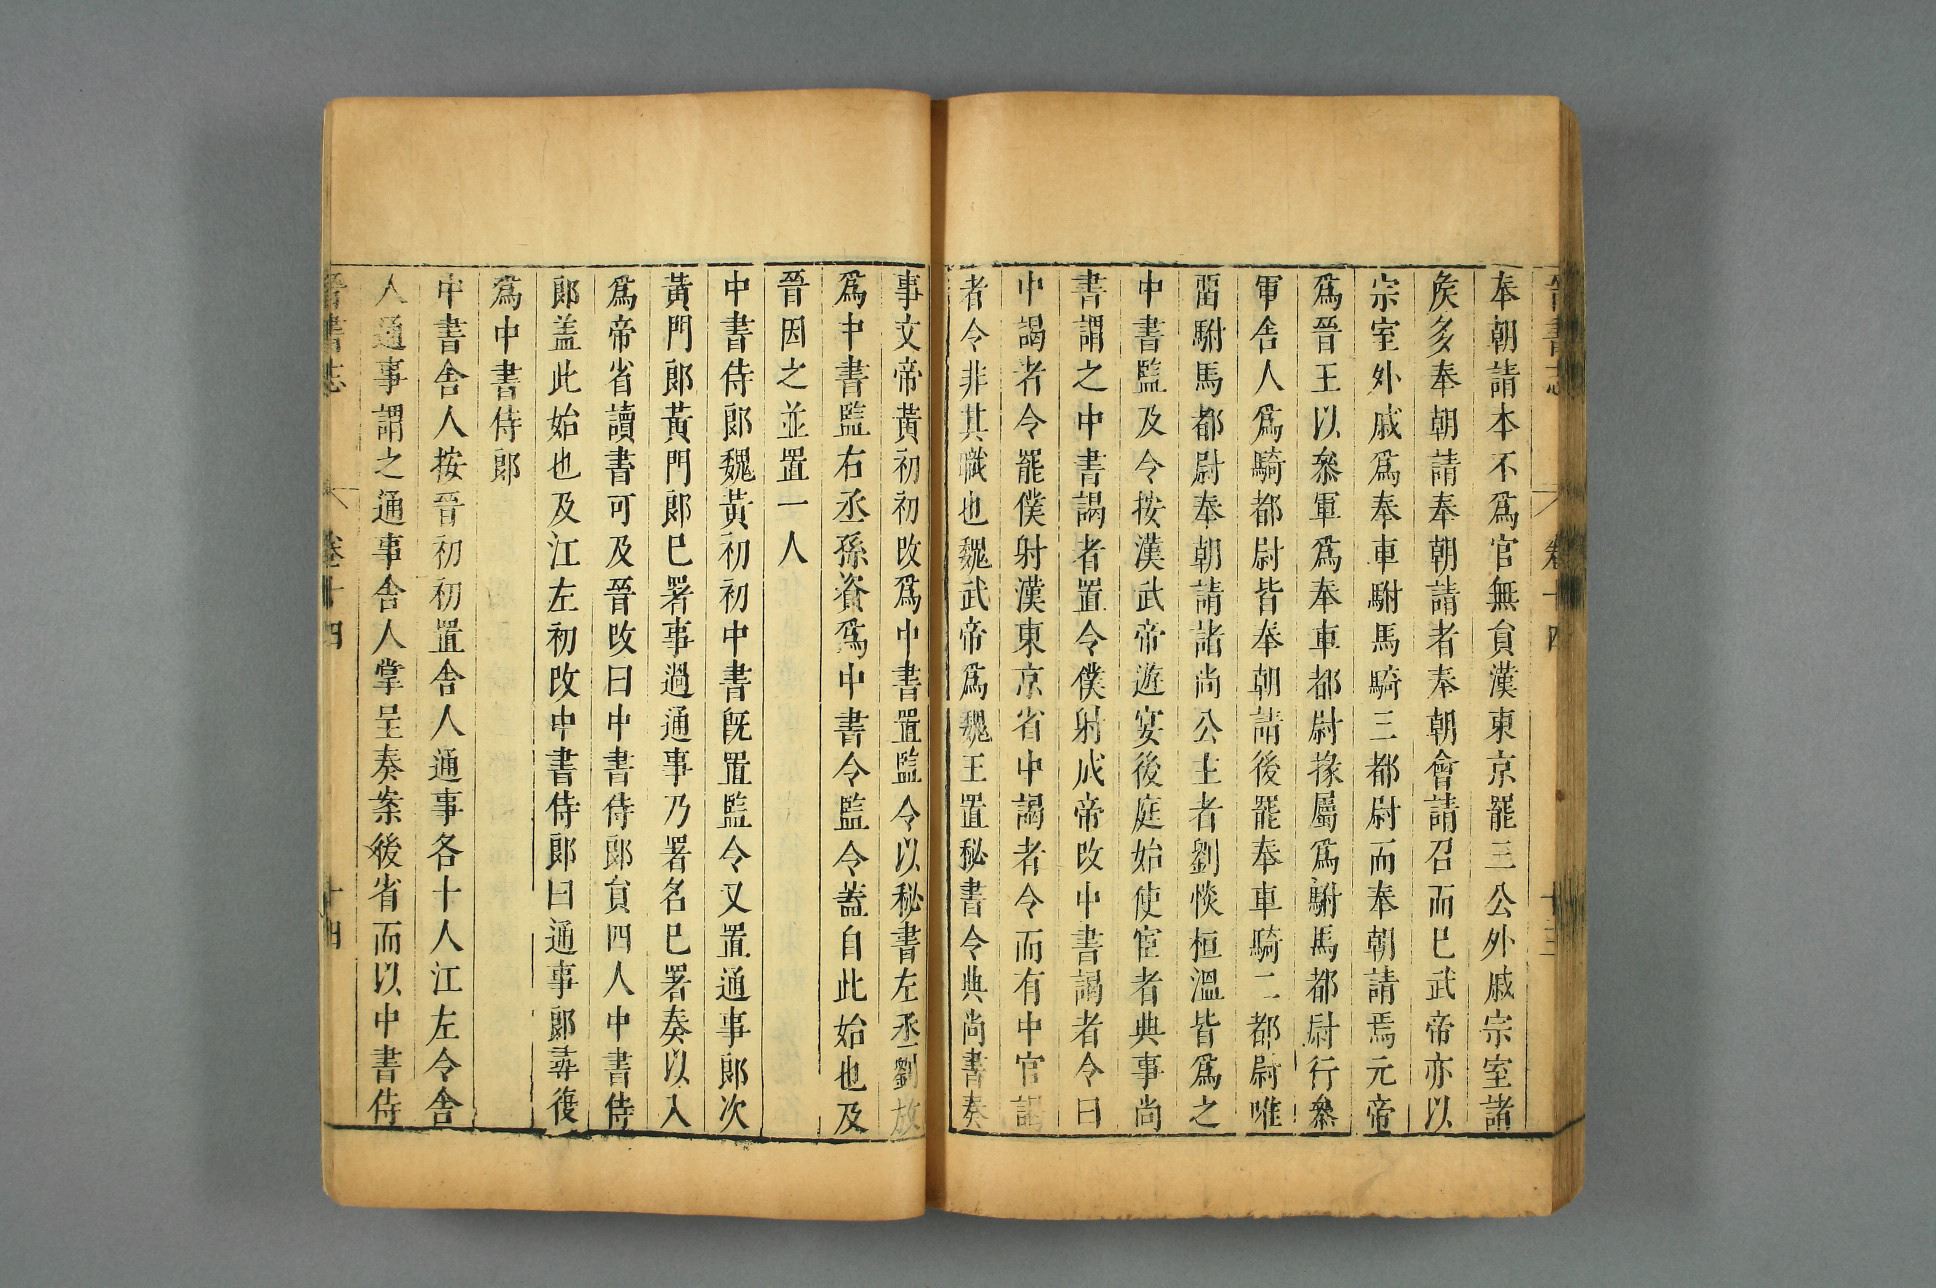 晉書志 卷十四 十三
奉朝請本不爲官無員漢東京罷三公外戚宗室諸
矦多奉朝請奉朝請者奉朝會請召而已武帝亦以
宗室外戚爲奉車駙馬騎三都尉而奉朝請焉元帝
爲晉王以叅軍爲奉車都尉掾屬爲駙馬都尉行叅
軍舍人爲騎都尉皆奉朝請後罷奉車騎二都尉唯
畱駙馬都尉奉朝請諸尚公主者劉惔桓溫皆爲之
中書監及令按漢武帝遊宴後庭始使宦者典事尚
書謂之中書謁者置令僕射成帝改中書謁者令曰
中謁者令罷僕射漢東京省中謁者令而有中官謁
者令非其職也魏武帝爲魏王置秘書令典尚書奏
事文帝黃初初改爲中書置監令以秘書左丞劉放
爲中書監右丞孫資爲中書令監令蓋自此始也及
晉因之並置一人
中書侍郞魏黃初初中書旣置監令又置通事郞次
黃門郞黃門郞已署事過通事乃署名已署奏以入
爲帝省讀書可及晉改曰中書侍郞員四人中書侍
郞盖此始也及江左初改中書侍郞曰通事郞尋復
爲中書侍郞
中書舍人按晉初初置舍人通事各十人江左令舍
人通事謂之通事舍人掌呈奏案後省而以中書侍
晉書志 卷十四 十四